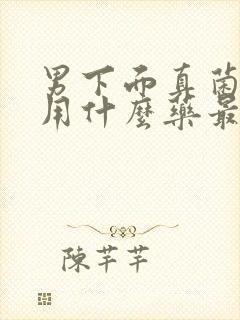 男下面真菌
用什麼藥最
陳芊芊